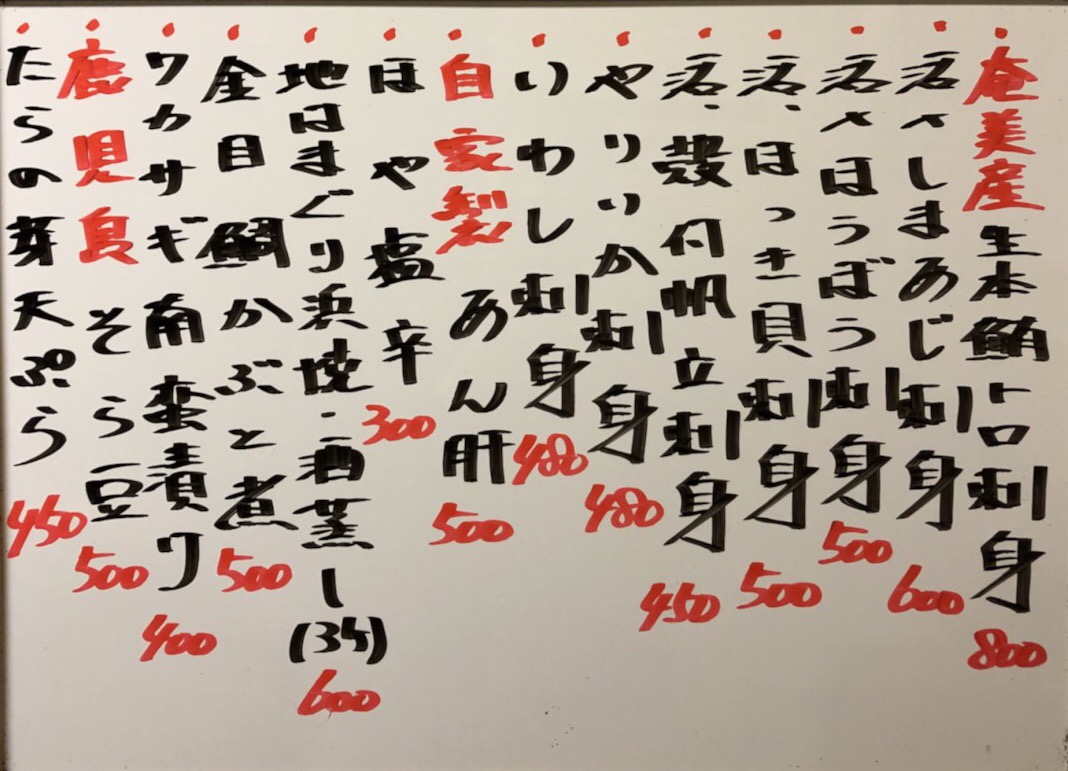 奄美産生本鮪トロ刺身 800
活〆しまあじ刺身 600
活〆ほうぼう刺身 500
活、ほっき貝刺身 500
活、殻付帆立刺身 450
やりいか刺身 480
いわし刺身 480
自家製あん肝 500
ほや塩辛 300
地はまぐり浜焼・酒蒸し(3ケ) 600
金目鯛かぶと煮 500
ワカサギ南蛮漬ケ 400
鹿児島そら豆 500
たらの芽天ぷら 450